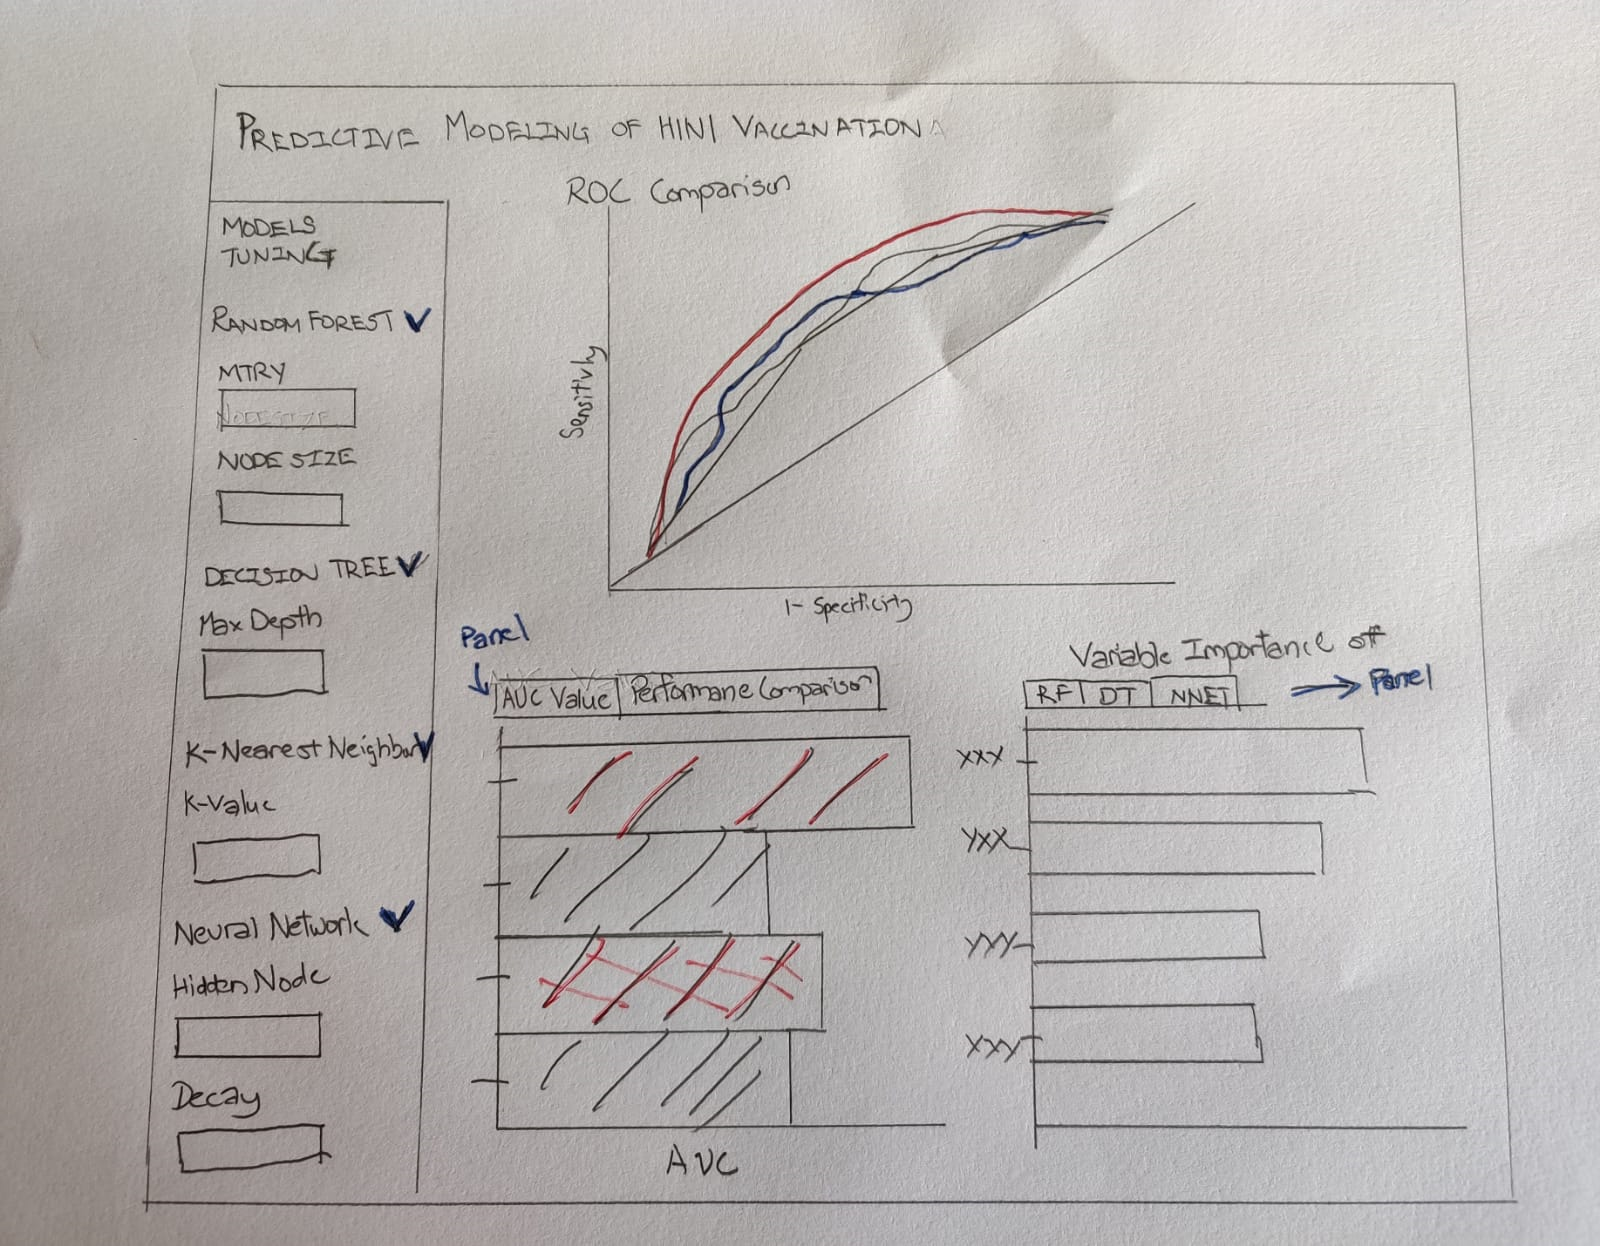 PREDICTIVE MODELING OF H1N1 VACCINATION
MODELS
TUNING
RANDOM FOREST
MTRY
NODE SIZE
NODE SIZE
DECISION TREE
Max Depth
K-Nearest Neighbor
K-Value
Neural Network
Hidden Node
Decay
ROC Comparison
Sensitivity
1- Specificity
Panel
AUC Value Performane Comparison
AUC
Variable Importance of
RF DT NNET
Panel
XXX
YXX
YYY
XXY